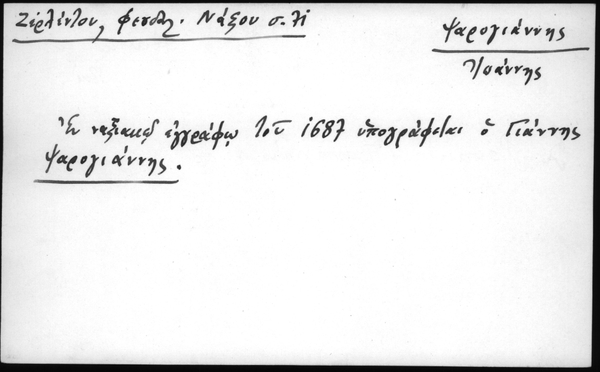 Ζερλέντου, Φεουδ. Νάξου σ.
Ψαρογιάννης
Ἰωάννης
Ἐν ναξιακῷ ἐγγράφῳ τοῦ 1687 ὑπογράφεται ὁ Γιάννης
Ψαρογιάννης.